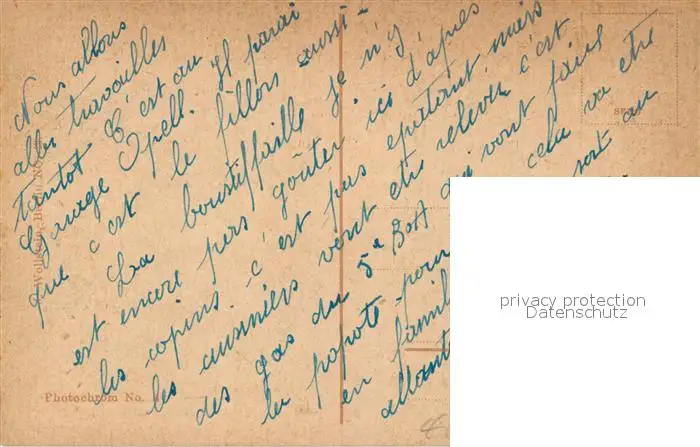 Nous allons
aller travailler
tantot C'est au
Garage Opell. Il parai
que c'est le fillons aussi-
La boustiffaille je n'y
est encore pas goûter ici d'après
les copins. c'est pas epatant mais
les cusiniers vont etre relever c'est
des gas du 5e BOA qui vont faire
la popote - pour cela va etre
en famil sort au
allant
Photochrom No.
privacy protection
Datenschutz